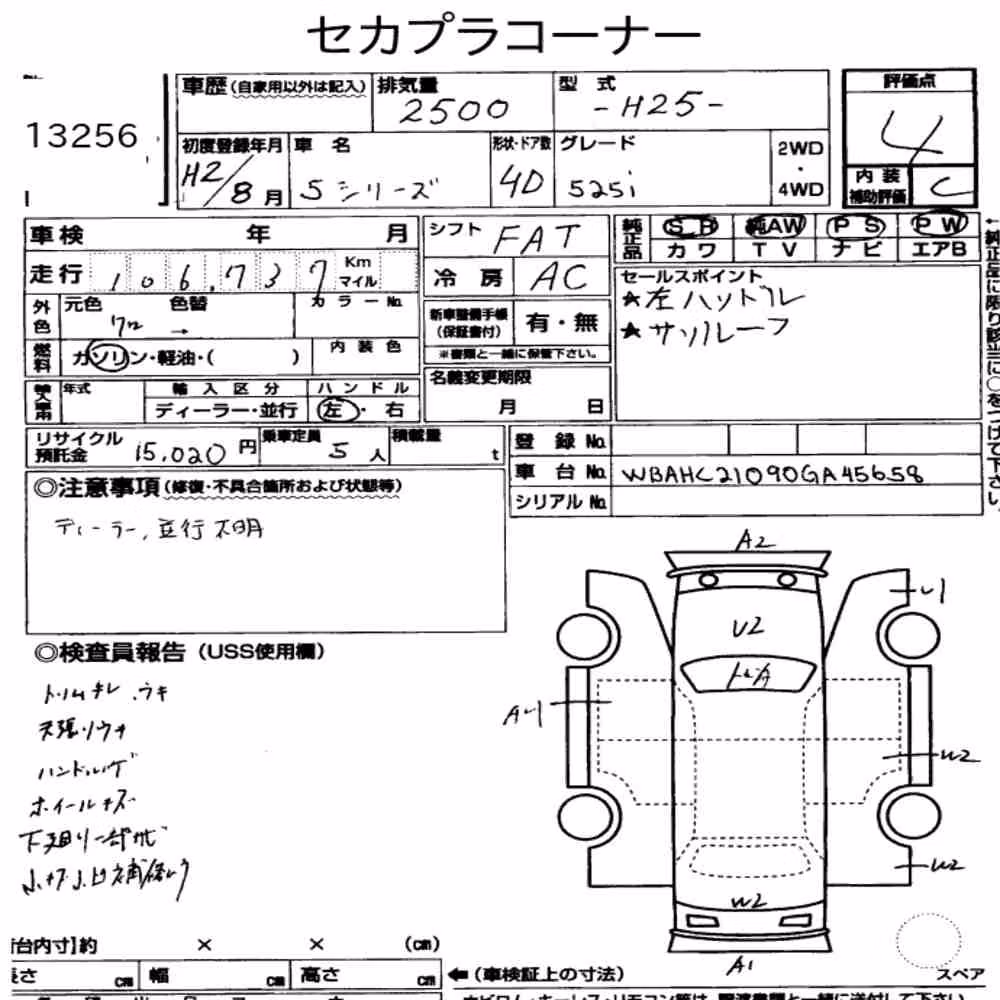 セカプラコーナー
13256
車歴(自家用以外は記入) 排気量 2500 型式 -H25- 評価点 4
初度登録年月 H2/8月 車名 5シリーズ 形状・ドア数 4D グレード 525i 2WD・4WD 内装補助評価 C
車検 年 月 シフト FAT 純正品 SR 純AW PS PW
カワ TV ナビ エアB
走行 106,737 Km マイル 冷房 AC セールスポイント
★左ハンドル
★サンルーフ
外色 元色 色替 カラーNo.
クロ →
新車整備手帳(保証書付) 有・無
※書類と一緒に保管下さい。
燃料 ガソリン・軽油・( ) 内装色
名義変更期限
月 日
輸入車用 年式 輸入区分 ハンドル
ディーラー・並行 左・右
リサイクル預託金 15,020円 乗車定員 5人 積載量 t
登録No.
車台No. WBAHC21090GA45658
シリアルNo.
◎注意事項(修復・不具合箇所および状態等)
ディーラー,並行不明
◎検査員報告(USS使用欄)
トリムキレ.ウキ
天張りウキ
ハンドルハゲ
ホイールキズ
下廻り一部サビ
小キズ小凹補修跡
A2
U1
U2
A1
W2
W2
W2
A1
台内寸】約 × × (cm)
長さ cm 幅 cm 高さ cm
←(車検証上の寸法)
スペア
←純正品に限り該当に○をつけて下さい。